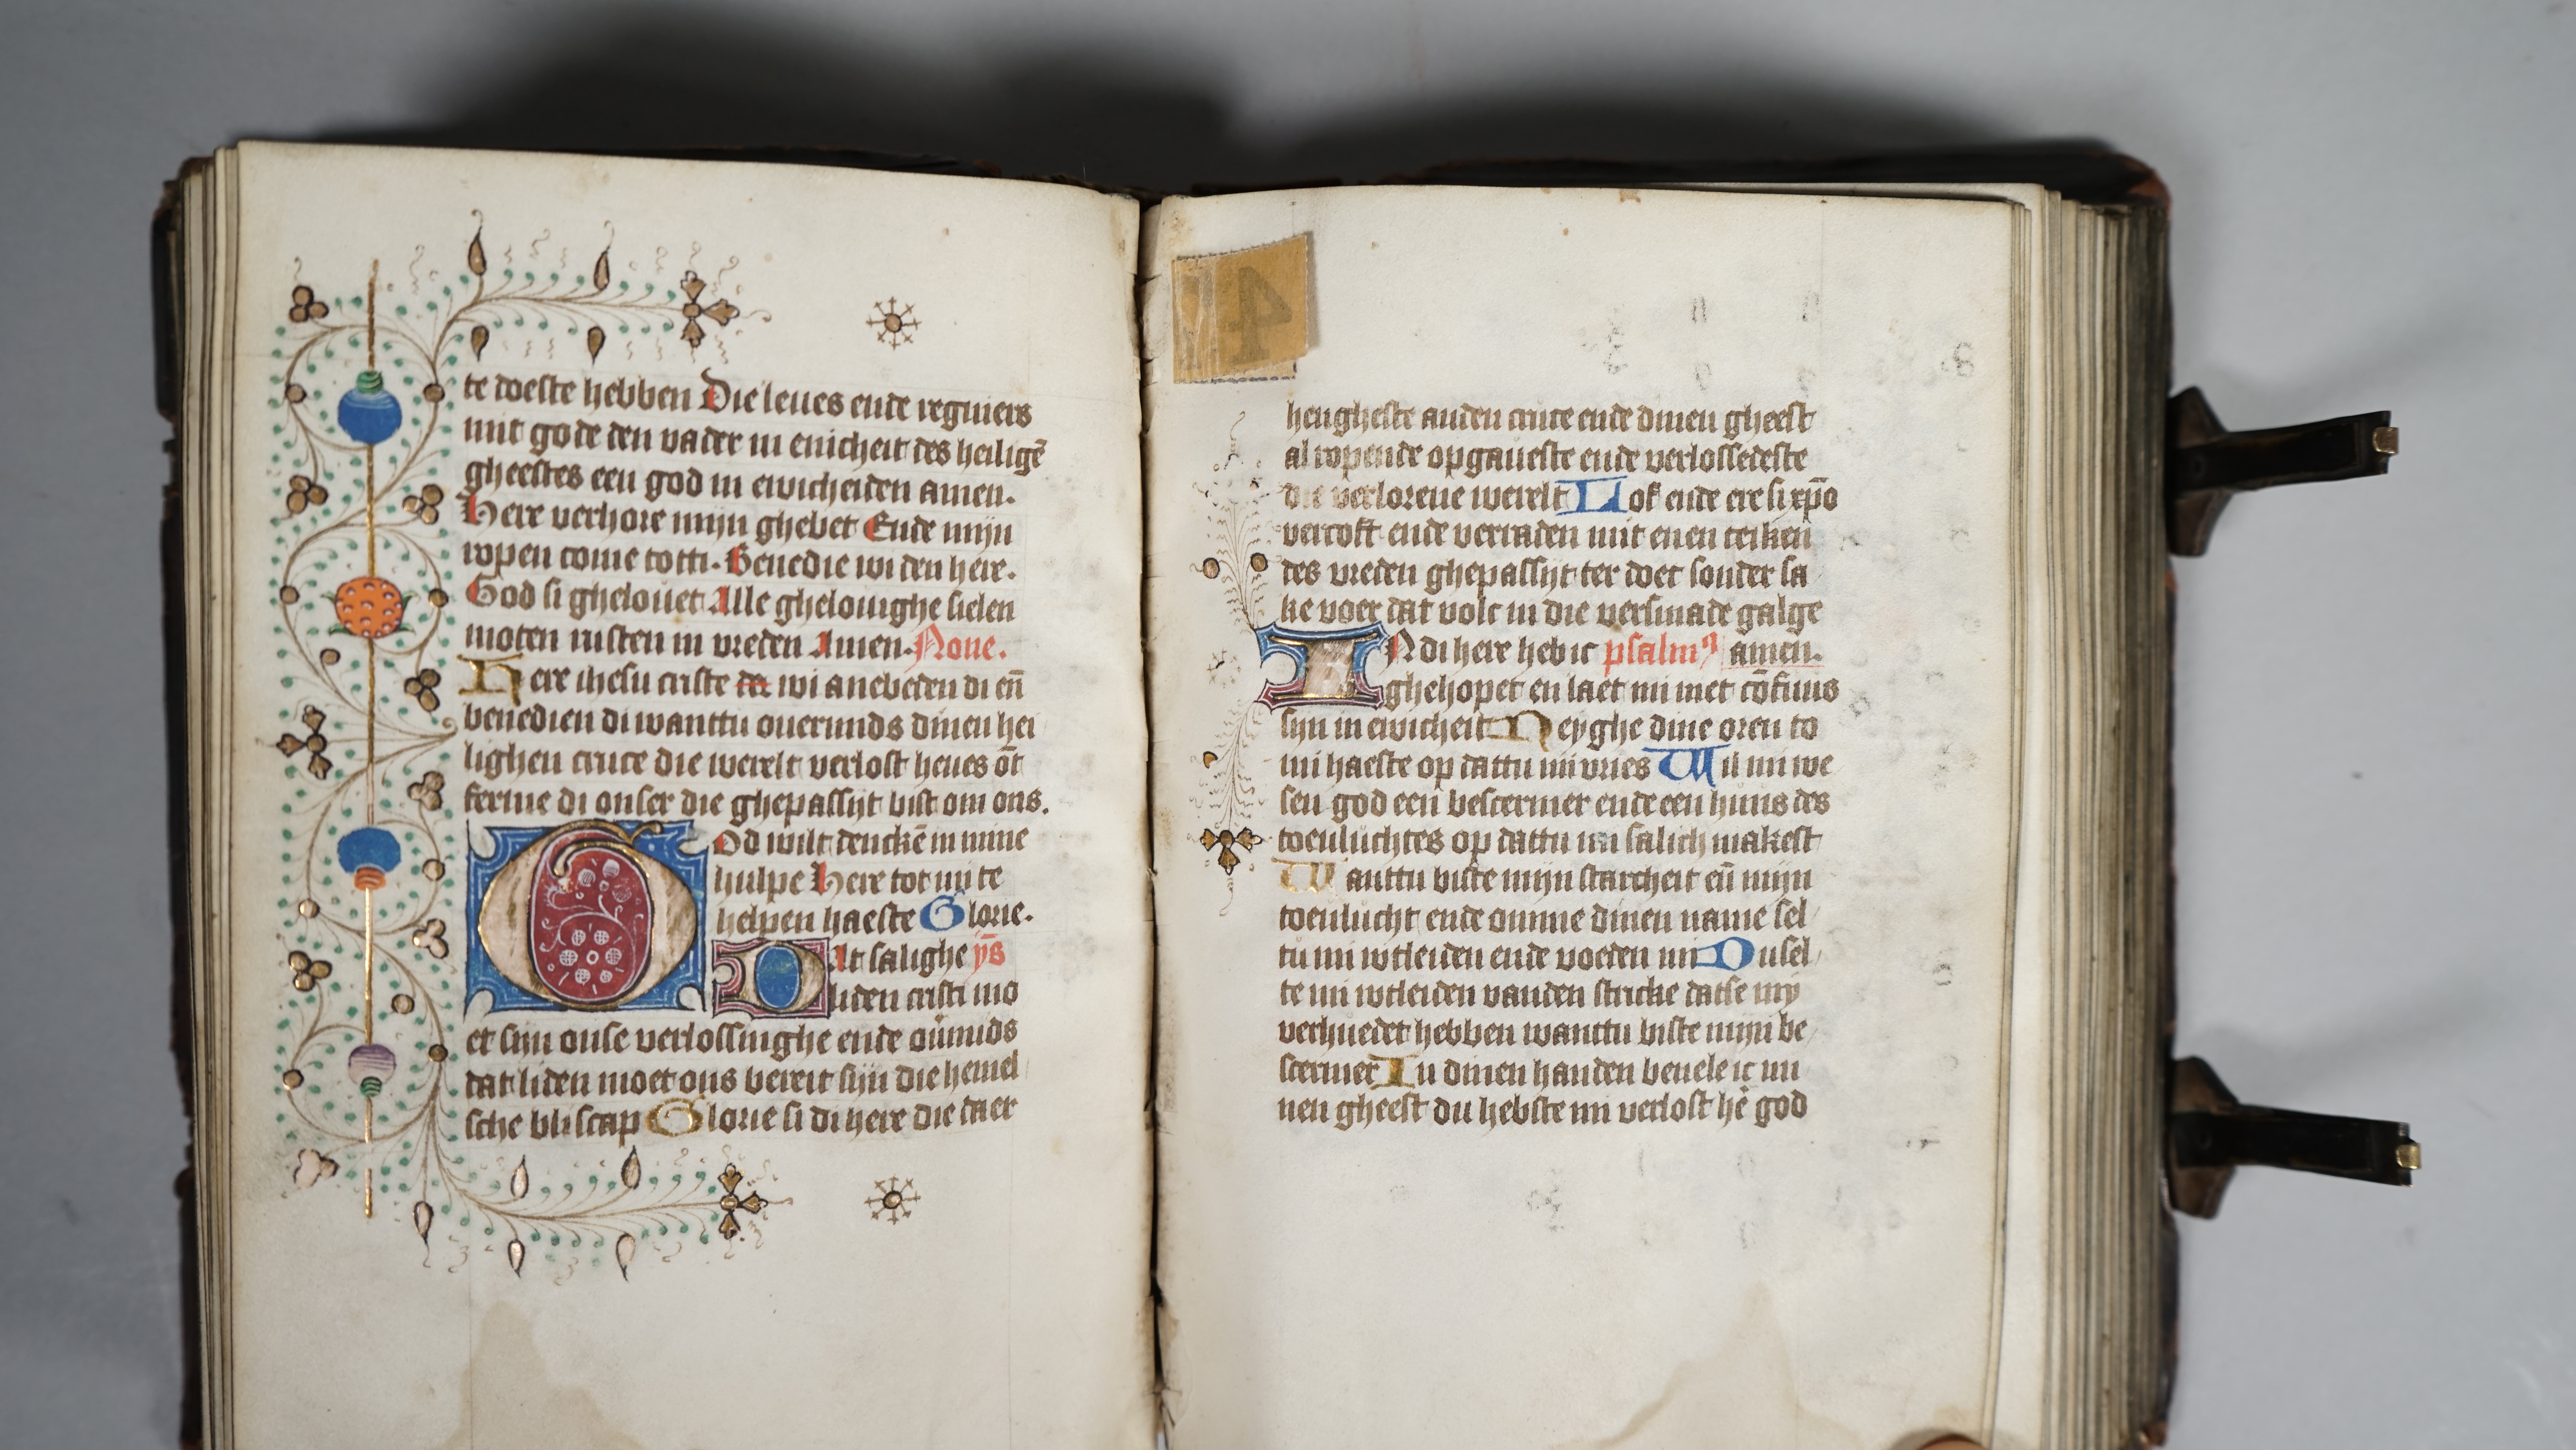 te doeste hebben Die leues ende regniers
mit gode den vader in enicheit des heiligē
gheestes een god in ewicheiden amen.
Here verhore mijn ghebet Ende mijn
ropen come totti. Benedie wi den here.
God si ghelouet Alle ghelouighe sielen
moten rusten in vreden Amen. None.
Here ihesu criste da wi anebeden di eñ
benedien di wanttu ouermids dinen hei
lighen cruce die werelt verlost heues ōt
ferme di onser die ghepassijt bist om ons.
God wilt dencken in mine
hulpe Here tot mi te
helpen haeste Glorie.
Dat salighe yṁs
liden cristi mo
et sijn onse verlossinghe ende ouˀmids
dat liden moet ons bereit sijn die hemel
sche bliscap Glorie si di here die daer
4
hengheste anden cruce ende dinen gheest
al ropende opgaueste ende verlossedeste
die verlorene werelt Lof ende ere si xp̄o
vercoft ende verraden mit enen teiken
des vreden ghepassijt ter doet sonder sa
ke voer dat volc in die versmade galge
IN di here heb ic psalmꝰ amen.
ghehopet en laet mi niet cōfuus
sijn in ewicheit Neyghe dine oren to
mi haeste op dattu mi vries Wil mi we
sen god een bescermer ende een huus des
toeuluchtes op dattu mi salich makest
Wanttu biste mijn starcheit eñ mijn
toeulucht ende omme dinen name sel
tu mi wtleiden ende voeden mi Du sel
te mi wtleiden vanden stricke datse my
verhuedet hebben wanttu biste mijn be
scermer In dinen handen beuele ic mi
nen gheest du hebste mi verlost heˀ god